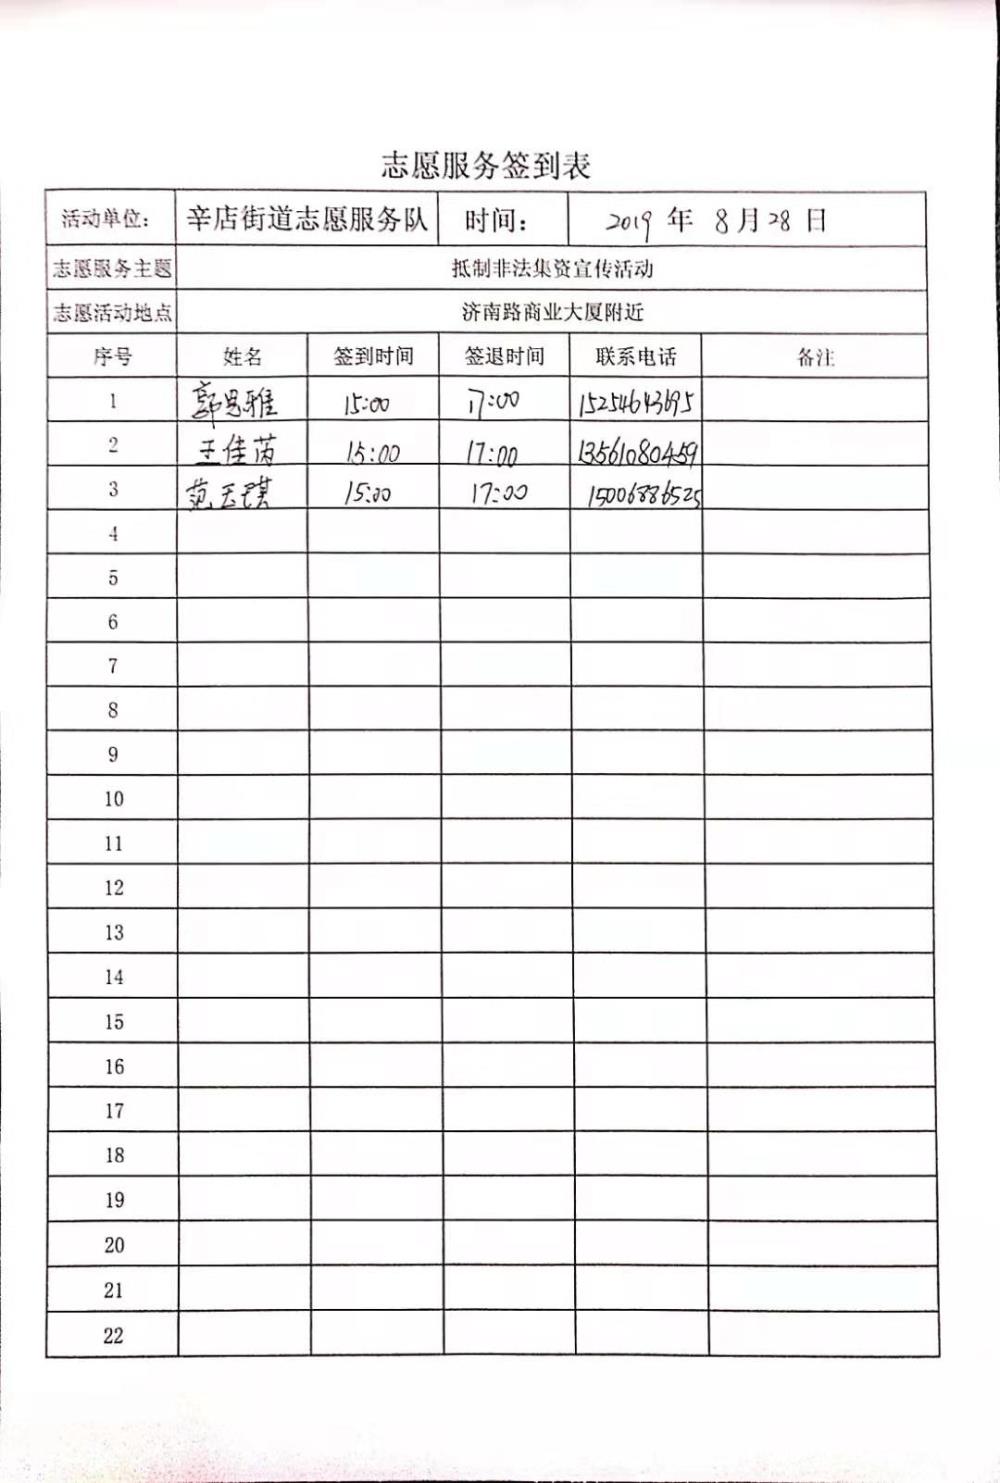 志愿服务签到表
活动单位： 辛店街道志愿服务队 时间： 2019 年 8 月 28 日
志愿服务主题 抵制非法集资宣传活动
志愿活动地点 济南路商业大厦附近
序号 姓名 签到时间 签退时间 联系电话 备注
1 郭思雅 15:00 17:00 15254643695
2 王佳芮 15:00 17:00 13561080459
3 范玉琪 15:00 17:00 15006886525
4
5
6
7
8
9
10
11
12
13
14
15
16
17
18
19
20
21
22